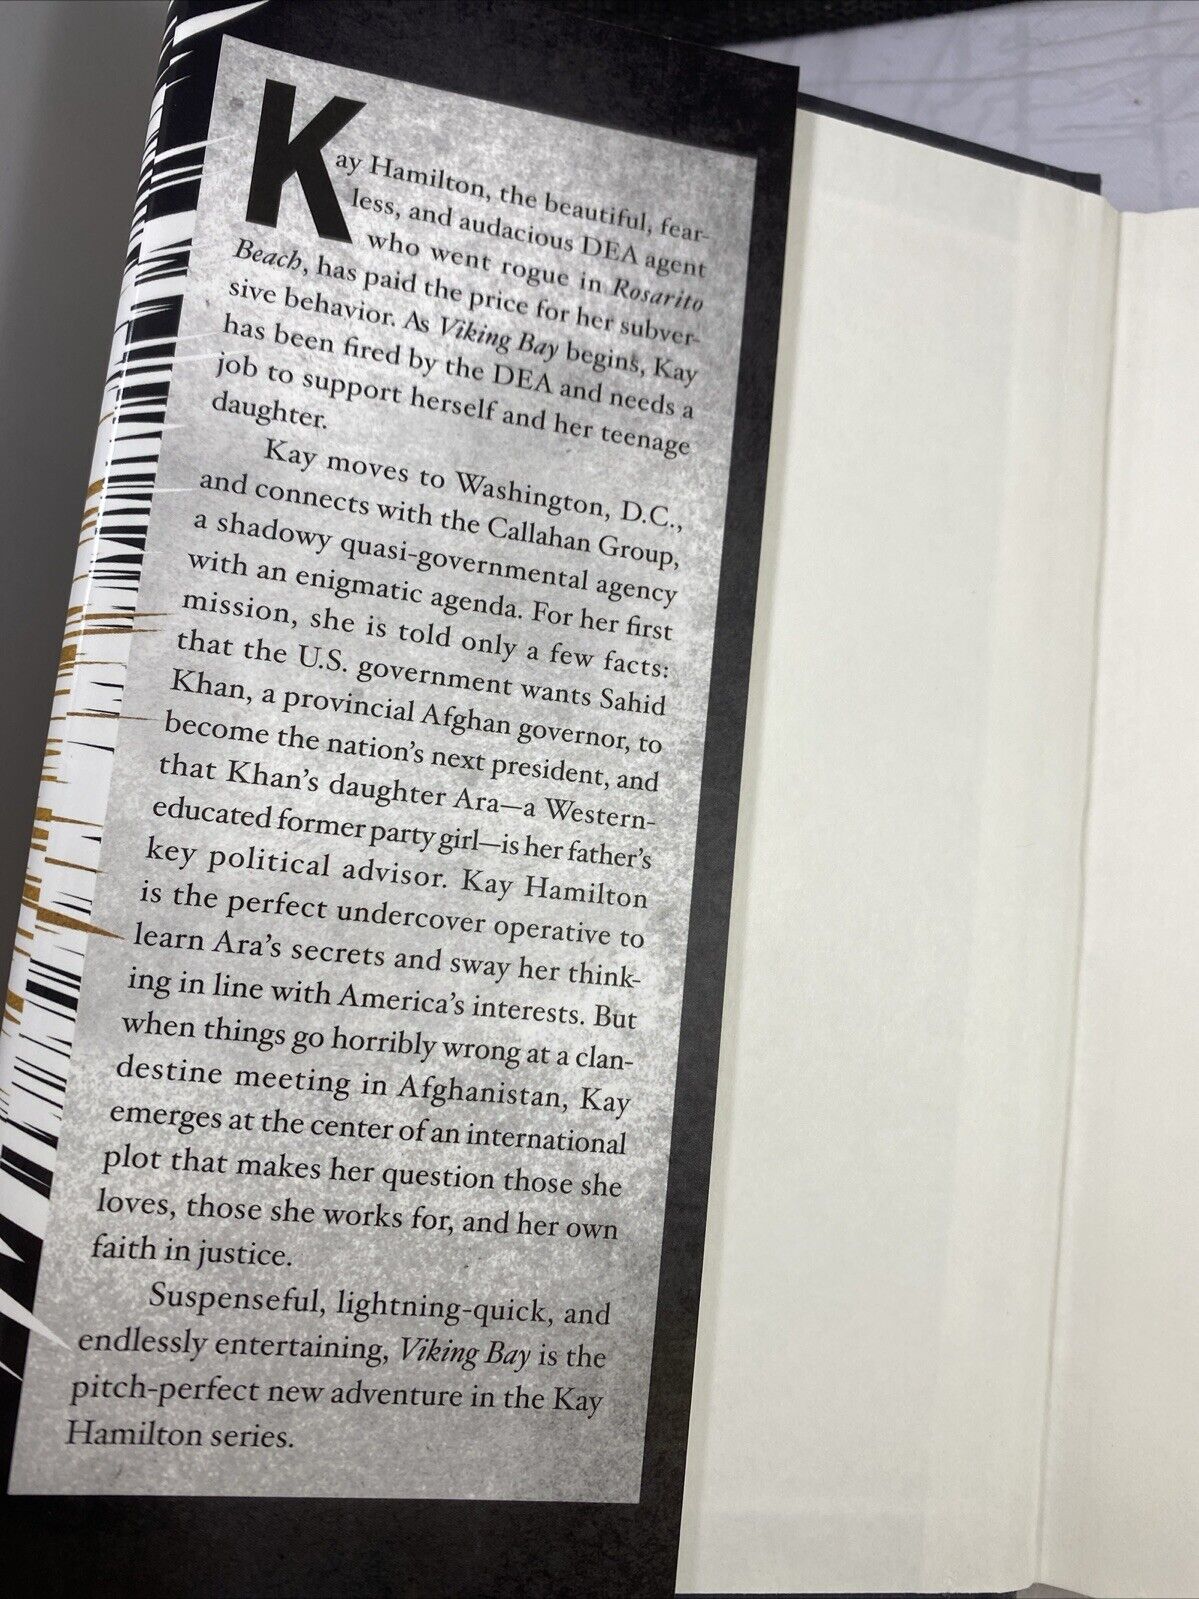 Kay Hamilton, the beautiful, fear-
less, and audacious DEA agent
who went rogue in Rosarito
Beach, has paid the price for her subver-
sive behavior. As Viking Bay begins, Kay
has been fired by the DEA and needs a
job to support herself and her teenage
daughter.
Kay moves to Washington, D.C.,
and connects with the Callahan Group,
a shadowy quasi-governmental agency
with an enigmatic agenda. For her first
mission, she is told only a few facts:
that the U.S. government wants Sahid
Khan, a provincial Afghan governor, to
become the nation's next president, and
that Khan's daughter Ara—a Western-
educated former party girl—is her father's
key political advisor. Kay Hamilton
is the perfect undercover operative to
learn Ara's secrets and sway her think-
ing in line with America's interests. But
when things go horribly wrong at a clan-
destine meeting in Afghanistan, Kay
emerges at the center of an international
plot that makes her question those she
loves, those she works for, and her own
faith in justice.
Suspenseful, lightning-quick, and
endlessly entertaining, Viking Bay is the
pitch-perfect new adventure in the Kay
Hamilton series.